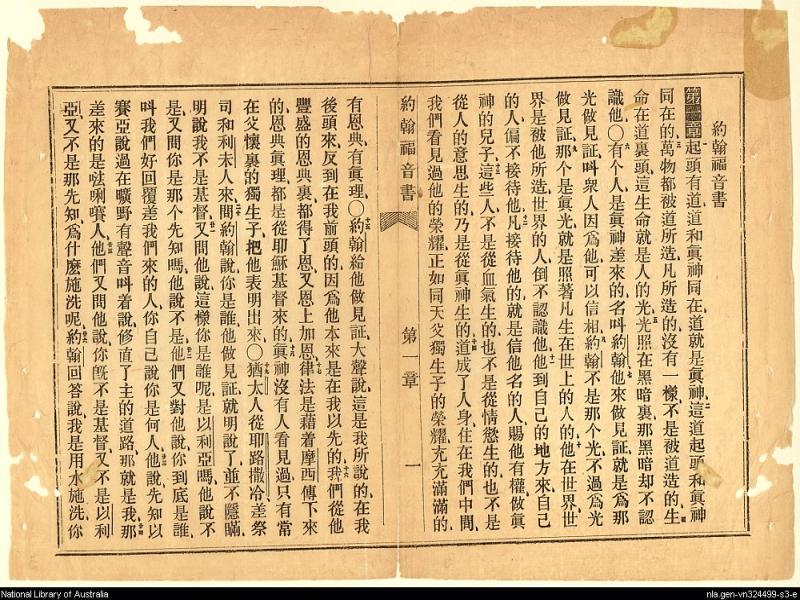 約翰福音書
第一章起頭有道道和眞神同在道就是眞神這道起頭和眞神
同在的萬物都被道所造凡所造的沒有一樣不是被道造的生
命在道裏頭這生命就是人的光光照在黑暗裏那黑暗却不認
識他〇有個人是眞神差來的名呌約翰他來做見証就是爲那
光做見証呌衆人因爲他可以信相約翰不是那個光不過爲光
做見証那個是眞光就是照著凡生在世上的人的他在世界世
界是被他所造世界的人倒不認識他他到自己的地方來自己
的人偏不接待他凡接待他的就是信他名的人賜他有權做眞
神的兒子這些人不是從血氣生的也不是從情慾生的也不是
從人的意思生的乃是從眞神生的道成了人身住在我們中間
我們看見過他的榮耀正如同天父獨生子的榮耀充充滿滿的
約翰福音書
第一章
一
有恩典有眞理〇約翰給他做見証大聲說這是我所說的在我
後頭來反到在我前頭的因爲他本來是在我以先的我們從他
豐盛的恩典裏都得了恩又恩上加恩律法是藉着摩西傳下來
的恩典眞理都是從耶穌基督來的眞神沒有人看見過只有常
在父懷裏的獨生子把他表明出來〇猶太人從耶路撒冷差祭
司和利未人來問約翰說你是誰他做見証就明說了並不隱瞞
明說我不是基督又問他說這樣你是誰呢是以利亞嗎他說不
是又問你是那個先知嗎他說不是他們又對他說你到底是誰
呌我們好回覆差我們來的人你自己說你是何人他說先知以
賽亞說過在曠野有聲音呌着說修直了主的道路那就是我那
差來的是𠵽唎嚽人他們又問他說你旣不是基督又不是以利
亞又不是那先知爲什麽施洗呢約翰回答說我是用水施洗你
National Library of Australia
nla.gen-vn324499-s3-e